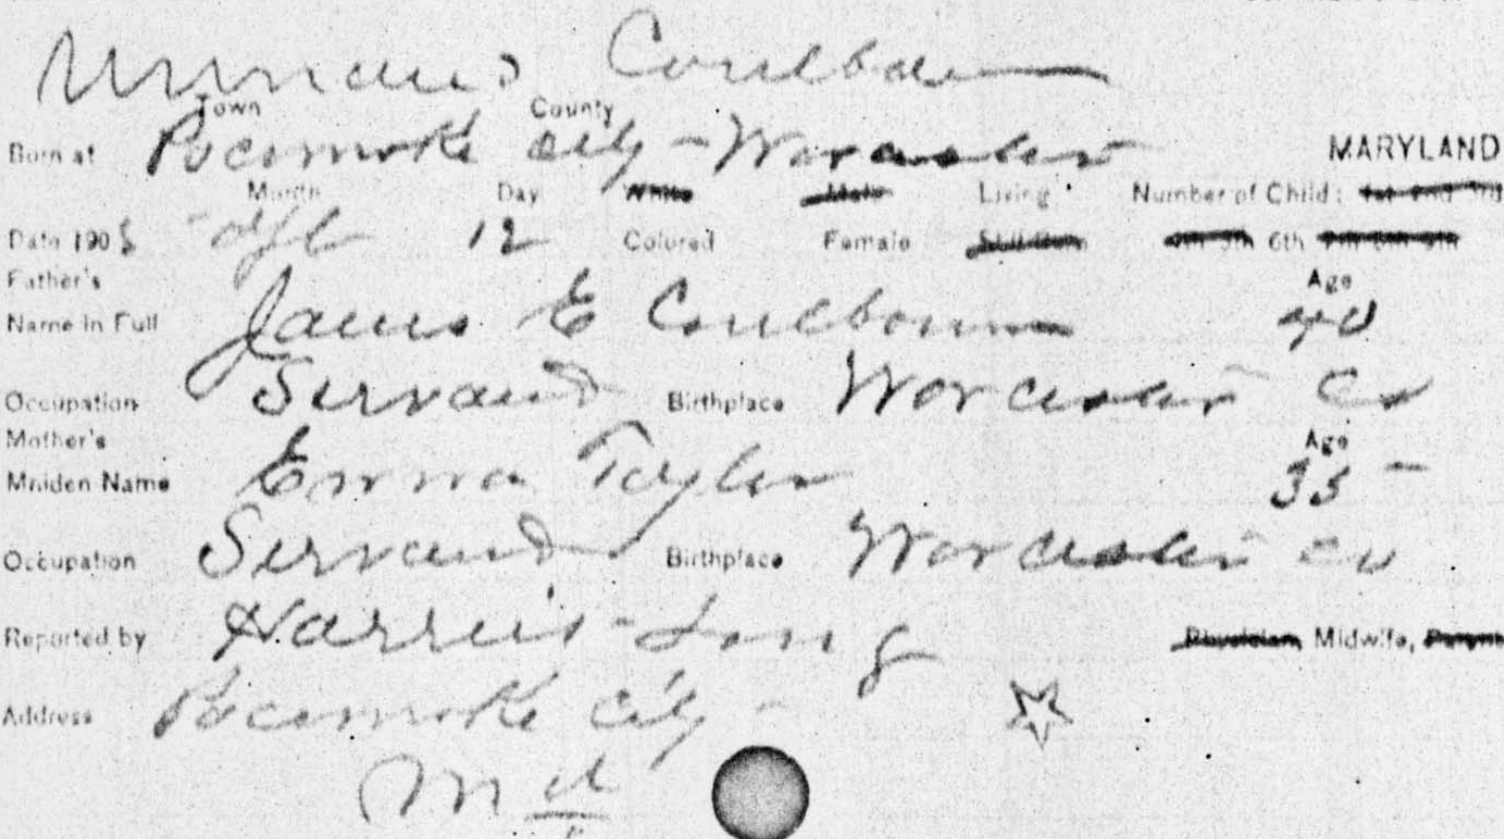 Unnamed Coulbourn
Town County
Born at Pocomoke City - Worcester MARYLAND
Month Day White Male Living Number of Child: 1st 2nd 3rd
Date 1905 12 Colored Female Still Born 4th 5th 6th 7th 8th 9th
Father's Age
Name in Full James E Coulbourn 40
Occupation Servant Birthplace Worcester Co
Mother's Age
Maiden Name Emma Taylor 35 -
Occupation Servant Birthplace Worcester Co
Reported by Long Physician, Midwife, Parent
Address Pocomoke City -
Md